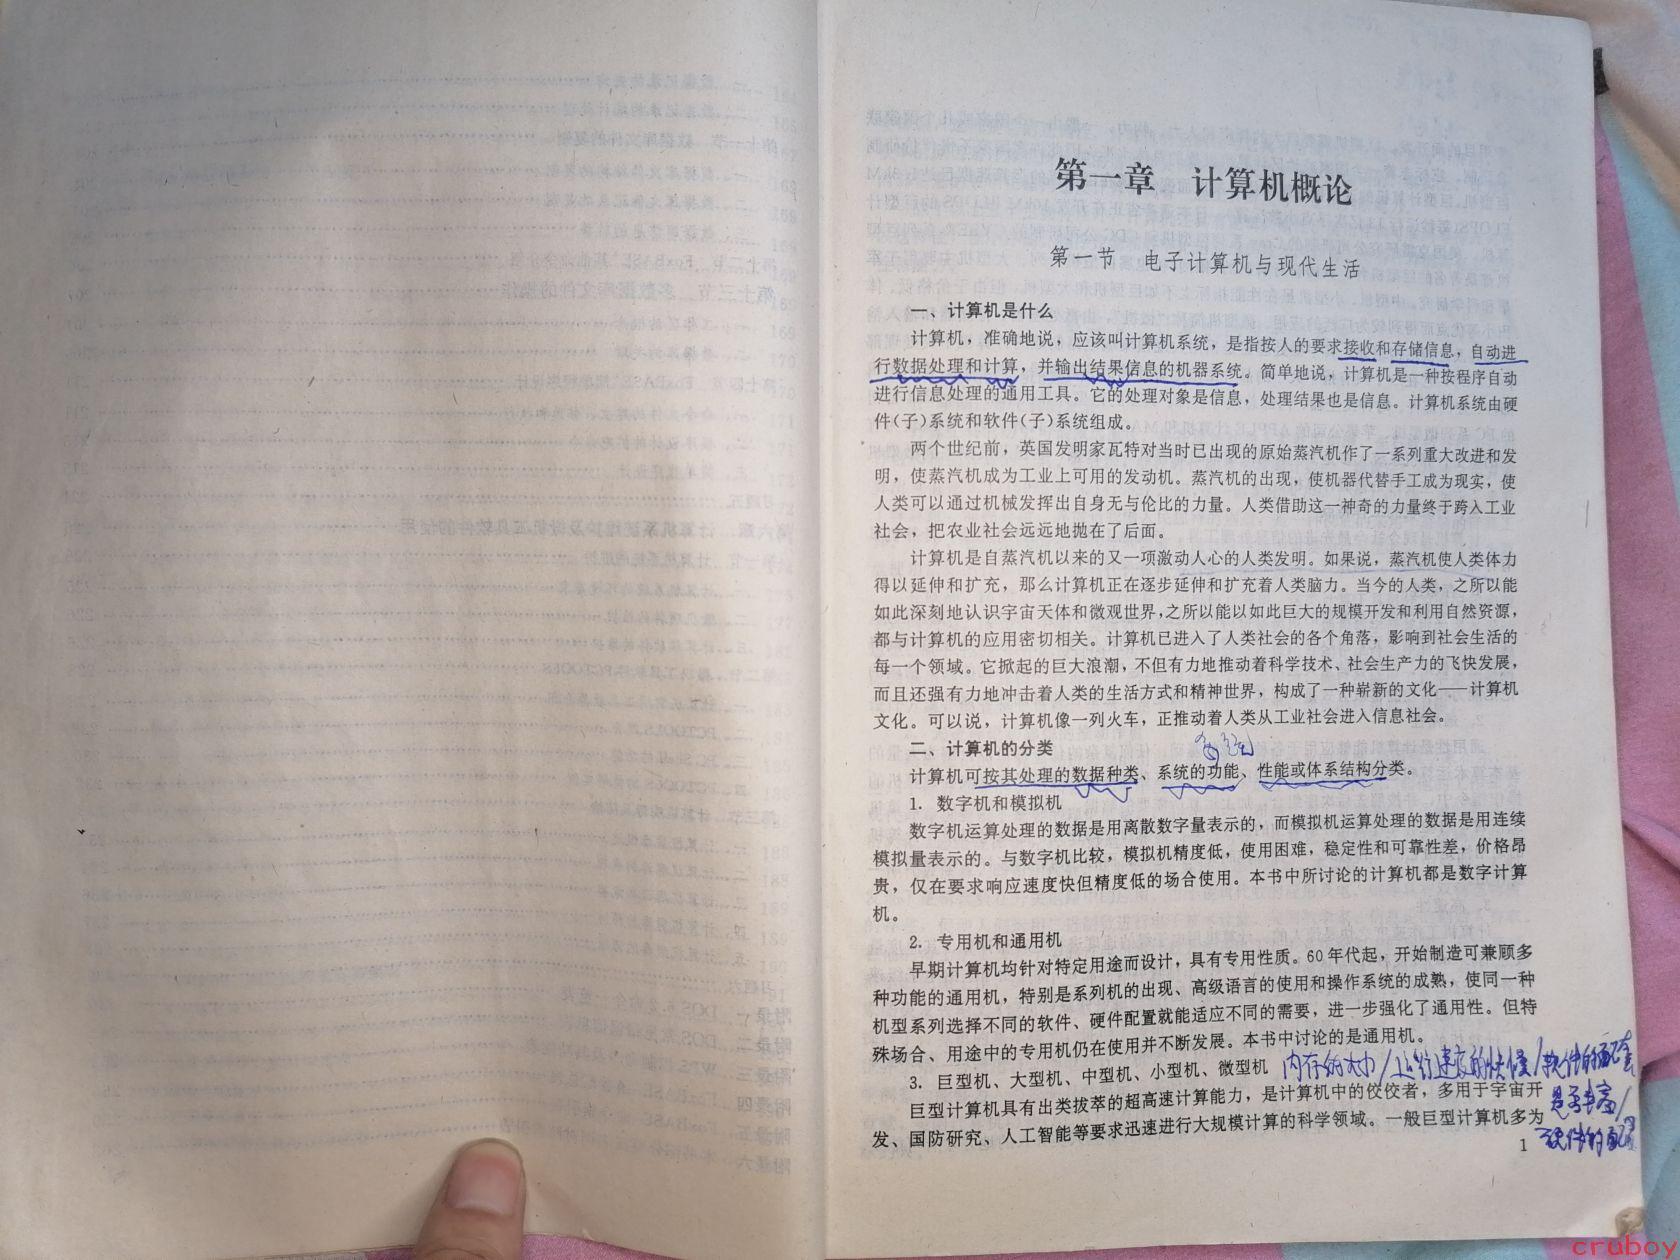 第一章 计算机概论
第一节 电子计算机与现代生活
一、计算机是什么
计算机，准确地说，应该叫计算机系统，是指按人的要求接收和存储信息，自动进
行数据处理和计算，并输出结果信息的机器系统。简单地说，计算机是一种按程序自动
进行信息处理的通用工具。它的处理对象是信息，处理结果也是信息。计算机系统由硬
件(子)系统和软件(子)系统组成。
两个世纪前，英国发明家瓦特对当时已出现的原始蒸汽机作了一系列重大改进和发
明，使蒸汽机成为工业上可用的发动机。蒸汽机的出现，使机器代替手工成为现实，使
人类可以通过机械发挥出自身无与伦比的力量。人类借助这一神奇的力量终于跨入工业
社会，把农业社会远远地抛在了后面。
计算机是自蒸汽机以来的又一项激动人心的人类发明。如果说，蒸汽机使人类体力
得以延伸和扩充，那么计算机正在逐步延伸和扩充着人类脑力。当今的人类，之所以能
如此深刻地认识宇宙天体和微观世界，之所以能以如此巨大的规模开发和利用自然资源，
都与计算机的应用密切相关。计算机已进入了人类社会的各个角落，影响到社会生活的
每一个领域。它掀起的巨大浪潮，不但有力地推动着科学技术、社会生产力的飞快发展，
而且还强有力地冲击着人类的生活方式和精神世界，构成了一种崭新的文化——计算机
文化。可以说，计算机像一列火车，正推动着人类从工业社会进入信息社会。
二、计算机的分类
计算机可按其处理的数据种类、系统的功能、性能或体系结构分类。
1. 数字机和模拟机
数字机运算处理的数据是用离散数字量表示的，而模拟机运算处理的数据是用连续
模拟量表示的。与数字机比较，模拟机精度低，使用困难，稳定性和可靠性差，价格昂
贵，仅在要求响应速度快但精度低的场合使用。本书中所讨论的计算机都是数字计算
机。
2. 专用机和通用机
早期计算机均针对特定用途而设计，具有专用性质。60年代起，开始制造可兼顾多
种功能的通用机，特别是系列机的出现、高级语言的使用和操作系统的成熟，使同一种
机型系列选择不同的软件、硬件配置就能适应不同的需要，进一步强化了通用性。但特
殊场合、用途中的专用机仍在使用并不断发展。本书中讨论的是通用机。
3. 巨型机、大型机、中型机、小型机、微型机 内存的大小/运行速度的快慢/软件的配套
是否丰富/
巨型计算机具有出类拔萃的超高速计算能力，是计算机中的佼佼者，多用于宇宙开
发、国防研究、人工智能等要求迅速进行大规模计算的科学领域。一般巨型计算机多为
硬件的配置
1
cruboy